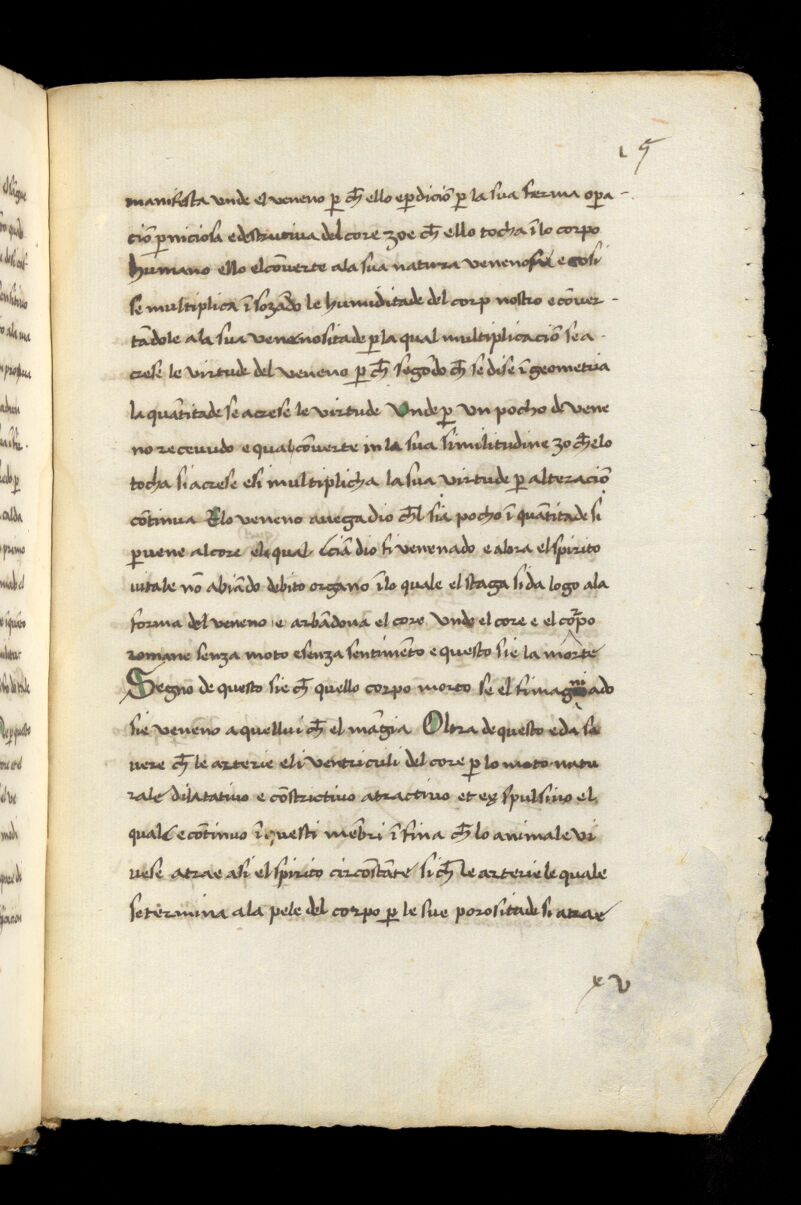 15
manifesta unde el veneno p̱ ch̄ ello e p̱diciō p̱ la sua ferma opa -
ciō p̱niciosa e destrutiua del core zoe ch̄ ello tocha ī lo corpo
humano ello el cōverte ala sua natura venenosa e cosi
se multiplica ī sozādo le humiditade del corp nostro e cōver -
tādole a la sua venenositade p̱ la qual multiplicaciō se a -
crese le virtude del veneno p̱ ch̄ segōdo ch̄ se dise ī geometria
la quātitade se acrese le virtude Unde p̱ un pocho de vene
no recevudo e qual cōverte in la sua similitudine zo ch̄ elo
tocha si acrese e si multiplicha la sua virtude p̱ alteraciō
cōtinua Elo veneno auegadio ch̄l sia pocho ī quātitade si
p̱vene al core el qual lciā dio si venenado e alora el spirito
vitale nō abiādo debito organo ī lo quale el staga si da logo ala
forma del veneno e arbādona el core unde el core e el corpo
romane senza moto e senza sentimēto e questo sie la morte
Segno de questo sie ch̄ quello corpo morto se el si magniado
sie veneno a quellui ch̄ el māgia Oltra de questo e da sa
vere ch̄ le arterie e li ventriculi del core p̱ lo moto natu
rale dilatatiuo e cōstrictiuo atractiuo et expulsiuo el
quale e cōtinuo ī questi mēbri ī fina ch̄ lo animale vi
vese atrae asi el spirito circōstāte si ch̄ le arterie le quale
se termina a la pele del corpo p̱ le sue porositade si atrae
xv